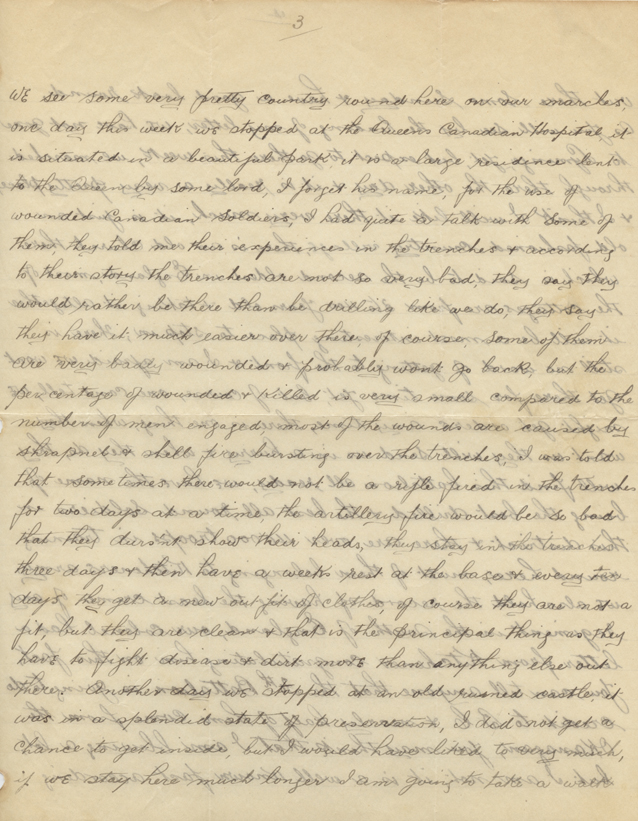 3
We see some very pretty country round here on our marches,
one day this week we stopped at the Queens Canadian Hospital, it
is situated in a beautiful park, it is a large residence lent
to the Queen by some lord, I forget his name, for the use of
wounded Canadian Soldiers, I had quite a talk with some of
them, they told me their experiences in the trenches & according
to their story the trenches are not so very bad, they say they
would rather be there than be drilling like we do, they say
they have it much easier over there, of course, some of them
are very badly wounded & probably wont go back, but the
percentage of wounded & killed is very small compared to the
number of men engaged, most of the wounds are caused by
shrapnel & shell fire bursting over the trenches, I was told
that sometimes there would not be a rifle fired in the trenches
for two days at a time, the artillery fire would be so bad
that they dursn't show their heads, they stay in the trenches
three days & then have a weeks rest at the base & every ten
days they get a new out fit of clothes, of course they are not a
fit, but they are clean & that is the principal thing as they
have to fight disease & dirt more than anything else out
there, Another day we stopped at an old ruined castle, it
was in a splendid state of preservation, I did not get a
chance to get inside, but I would have liked to very much,
if we stay here much longer I am going to take a walk